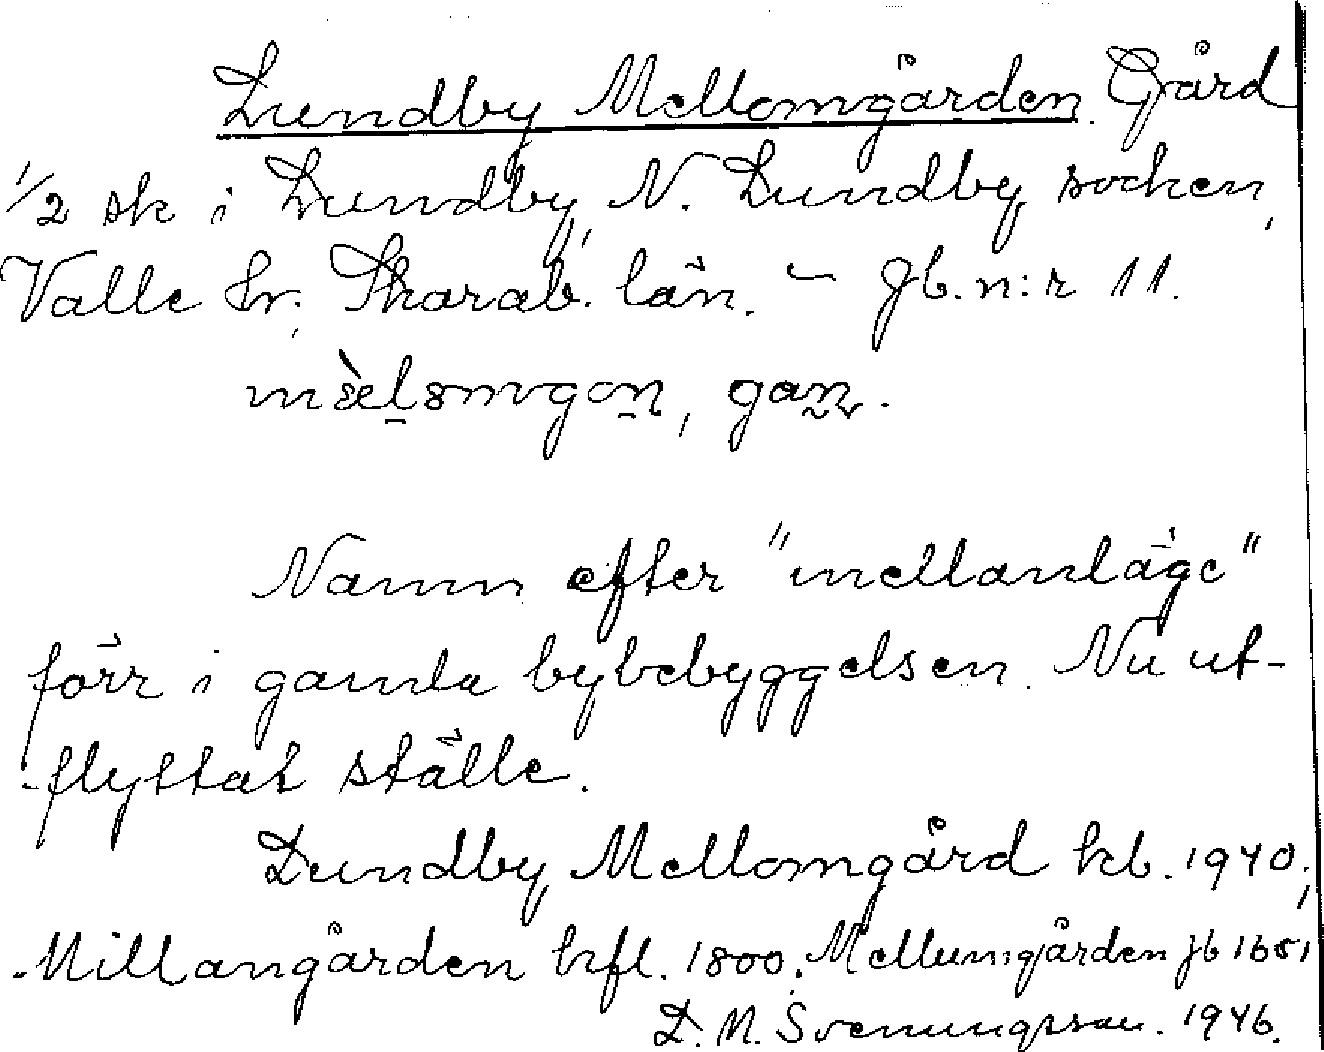 Lundby Mellomgården. Gård
1/2 sk i Lundby, N. Lundby socken,
Valle hr., Skarab. län. – Jb. n:r 11.
Namn efter "mellanläge"
förr i gamla bybebyggelsen. Nu ut-
flyttat ställe.
Lundby Mellomgård kb. 1940;
Millangården hfl. 1800. Mellumgården jb 1651
D. N. Svenungsson. 1946.